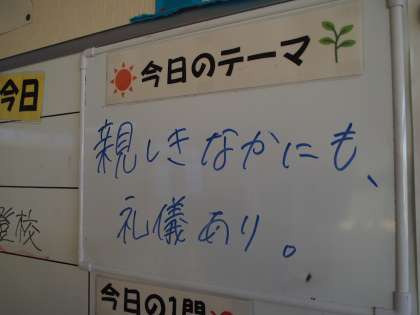 今日のテーマ
今日
親しきなかにも、
礼儀あり。
登校
今日の1問